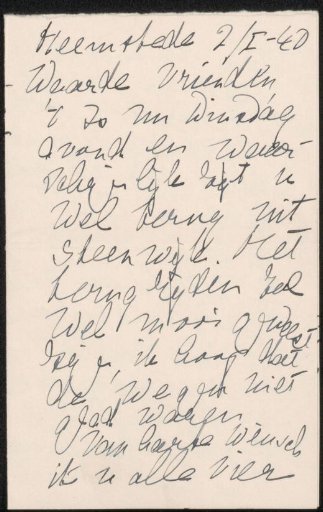 Heemstede 2/I-40
Waarde Vrienden
't Is nu Dinsdag
avond en waar
schijnlijk zijt u
wel terug uit
Steenwijk. Het
terug rijden zal
wel mooi geweest
zijn, ik hoop dat
de wegen niet
glad waren
Van harte wensch
ik u alle vier